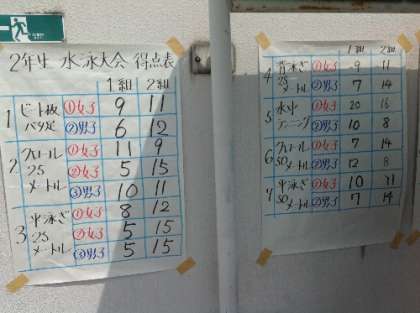 2年生 水泳大会 得点表
1組 2組
1 ビート板 ①女子 9 11
バタ足 ②男子 6 12
2 クロール ①女子 11 9
25 ②男子 5 15
メートル ③男子 10 11
3 平泳ぎ ①女子 8 12
25 ②男子 5 15
メートル ③男子 5 15
1組 2組
4 背泳ぎ ①女子 9 11
25メートル ②男子 7 14
5 水中 ①女子 20 16
②男子 10 8
6 クロール ①女子 7 14
50メートル ②男子 12 8
7 平泳ぎ ①女子 10 11
50メートル ②男子 7 14